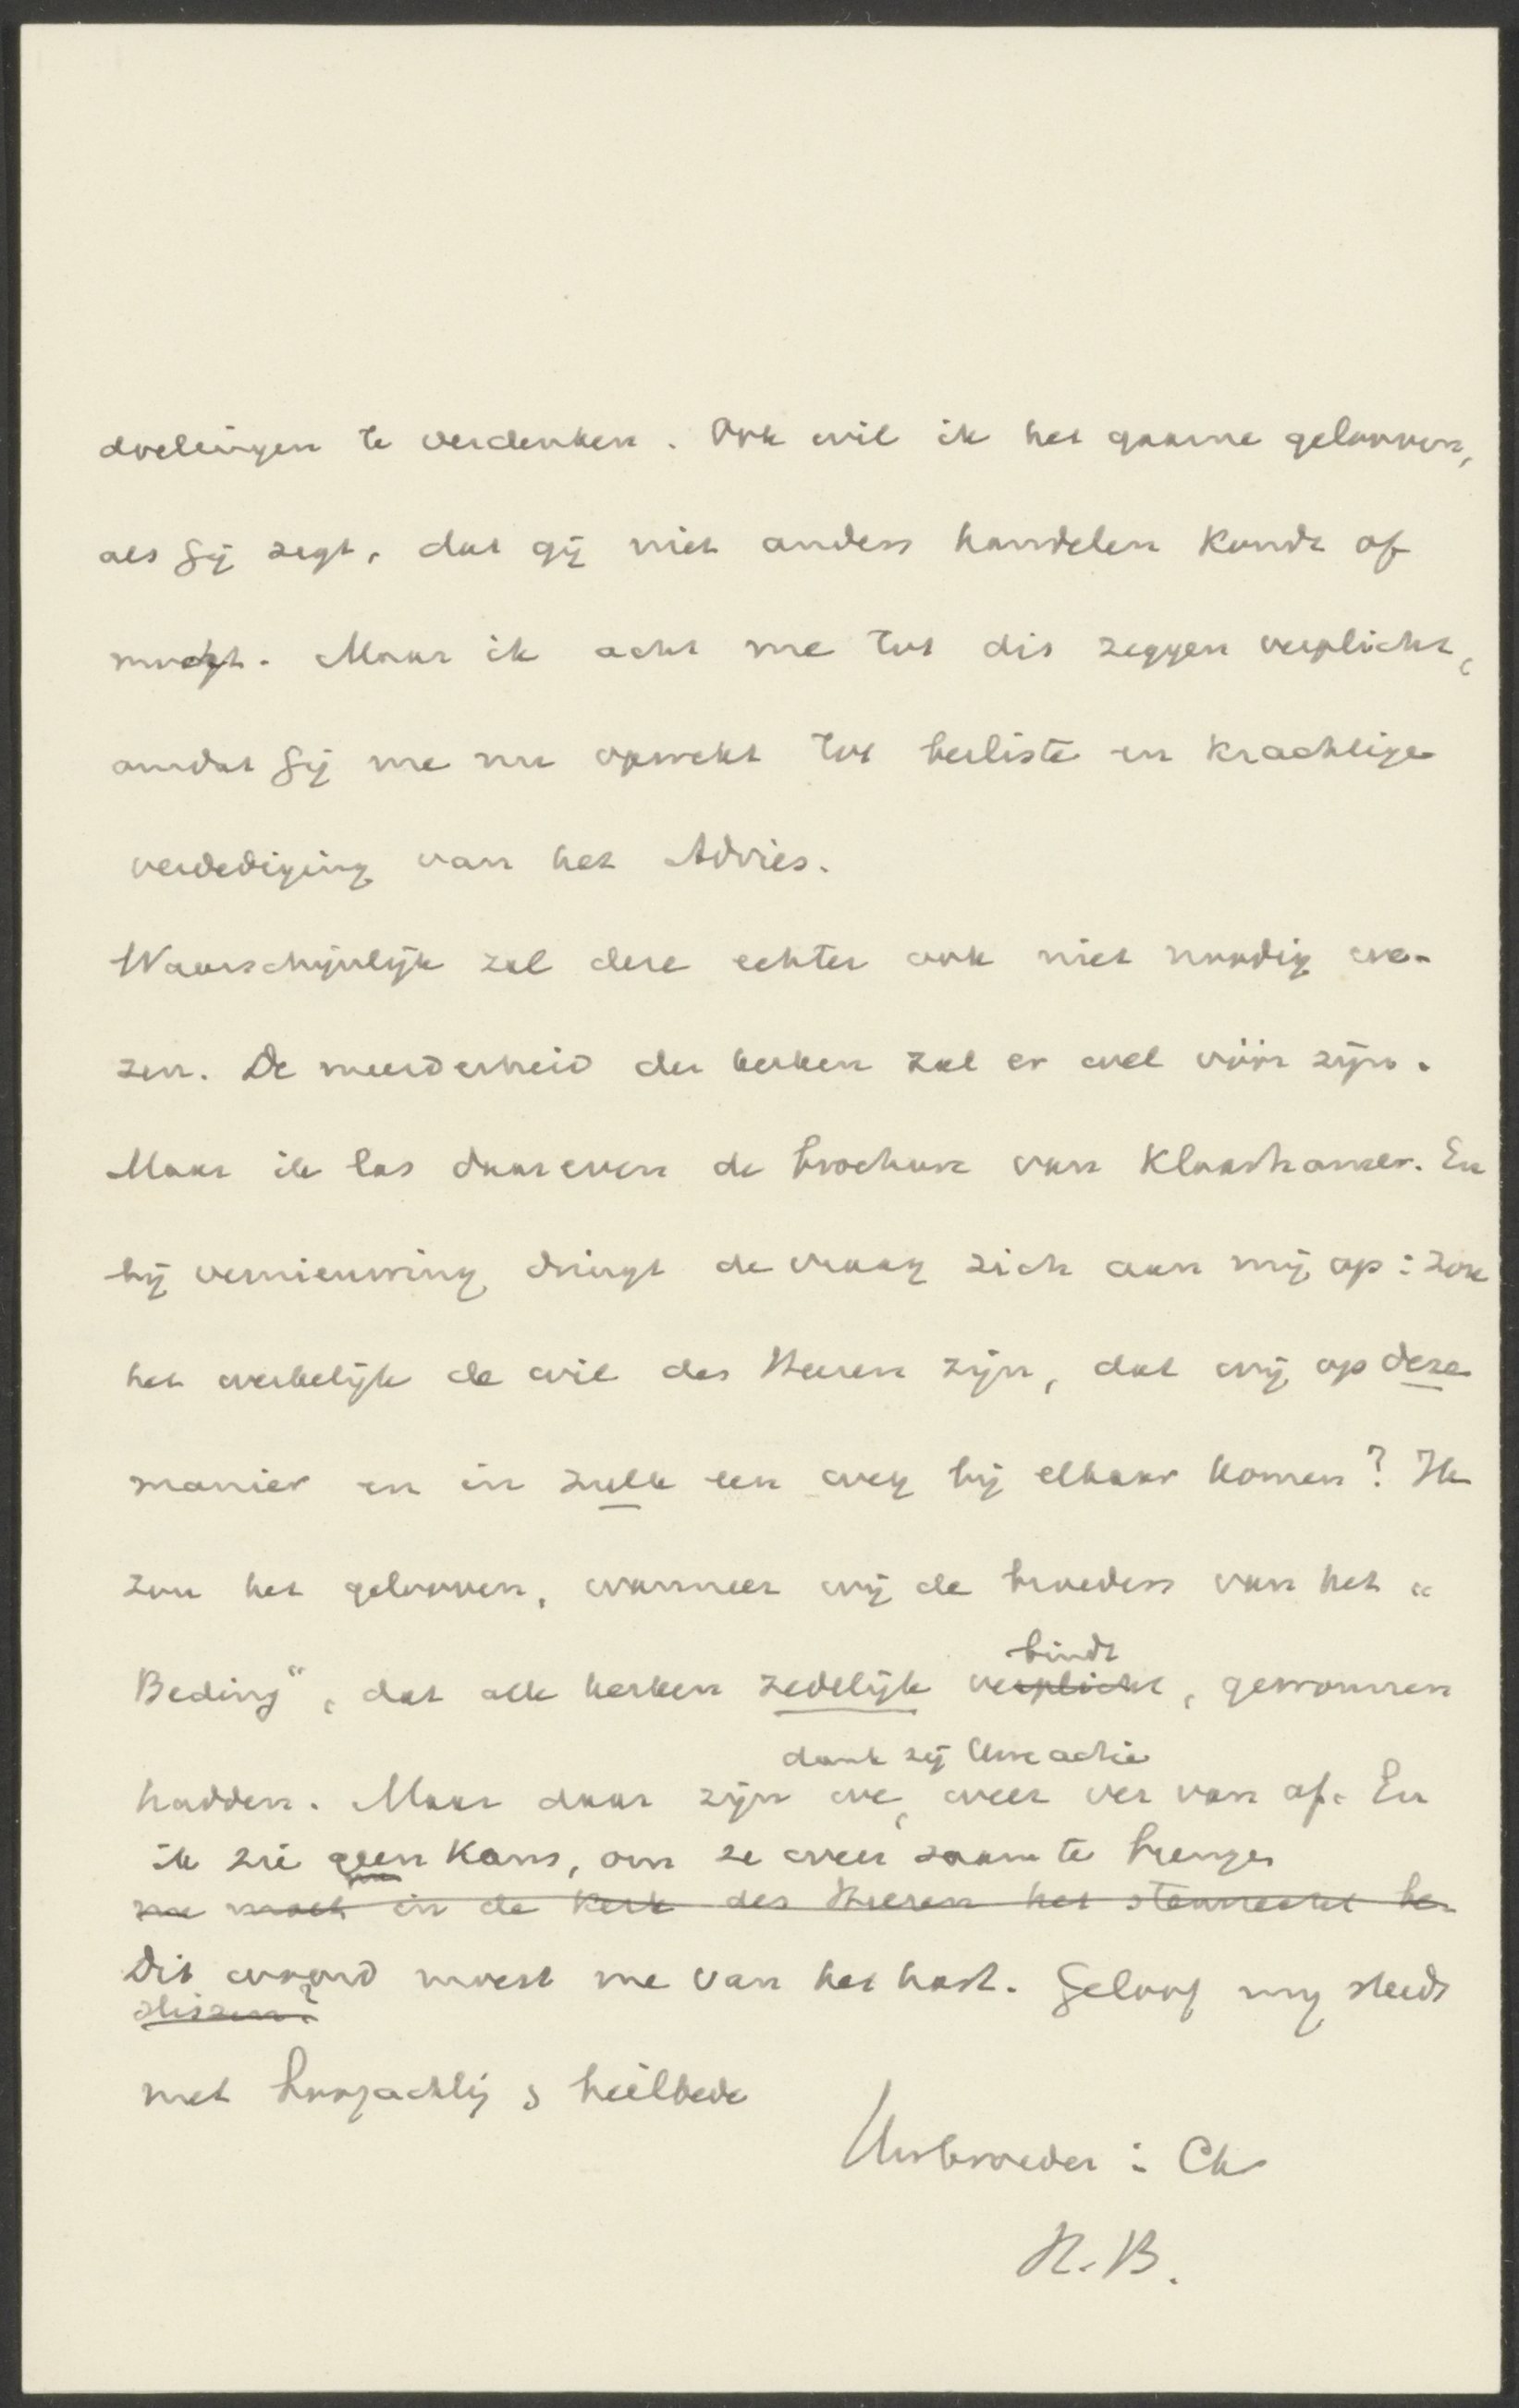 doelingen te verdenken. Ook wil ik het gaarne gelooven,
als gij zegt, dat gij niet anders handelen kondt of
moogt. Maar ik acht me tot dit zeggen verplicht,
omdat gij me nu opwekt tot besliste en krachtige
verdediging van het Advies.
Waarschijnlijk zal deze echter ook niet noodig we-
zen. De meerderheid der kerken zal er wel vóór zijn.
Maar ik las daareven de brochure van Klaarhamer. En
bij vernieuwing dringt de vraag zich aan mij op: zou
het werkelijk de wil des Heeren zijn, dat wij op deze
manier en in zulk een weg bij elkaar komen? Ik
zou het gelooven, wanneer wij de broeders van het „
bindt
Beding“, dat alle kerken zedelijk verplicht, gewonnen
dank zij Uwe actie
hadden. Maar daar zijn we weer ver van af. En
ik zie geen kans, om ze weer saam te brengen
moet in de kerk des Heeren het stemrecht be-
Dit woord moest me van het hart. Geloof mij steeds
slissen?
met hoogachting & heilbede
Uw broeder i. Ch
H. B.